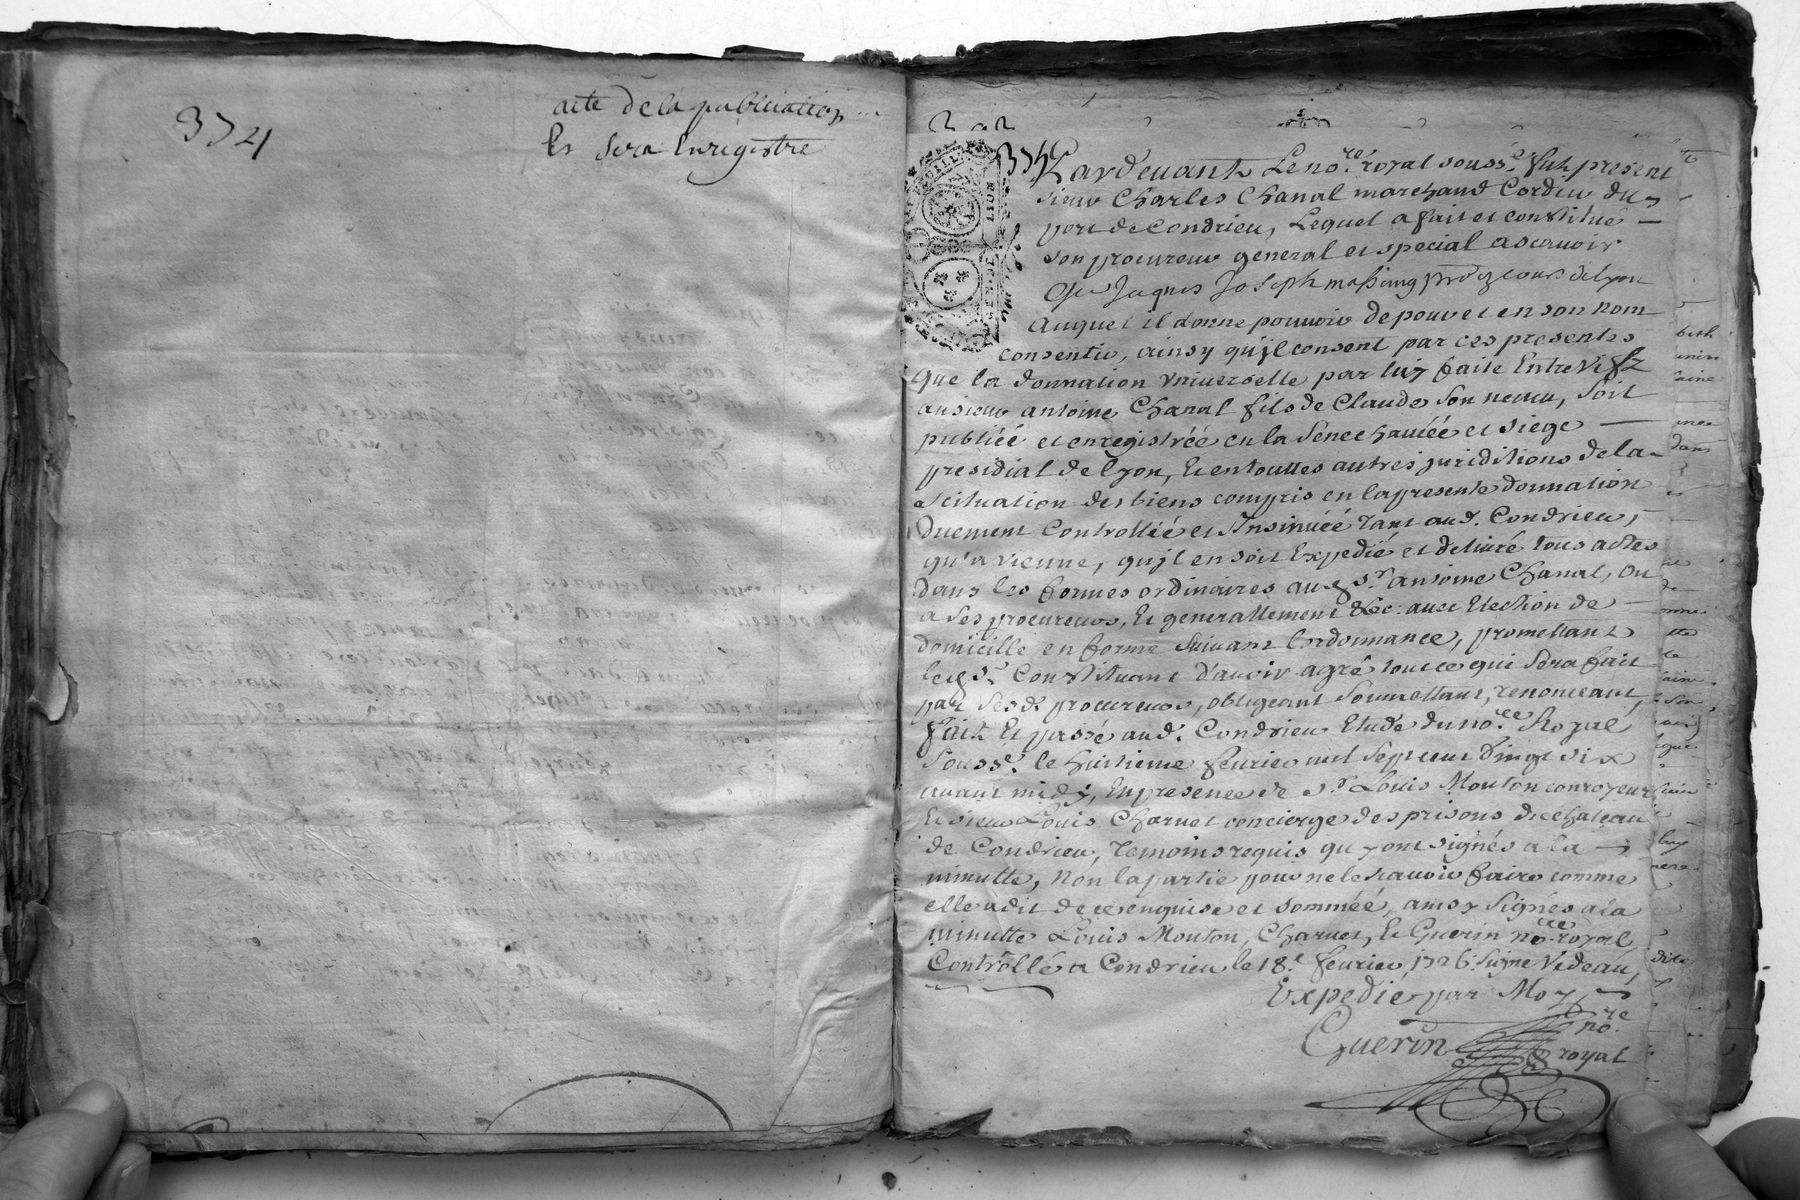 374
acte de la publication
Et sera Enregistré
374
Pardevant Le no.re royal souss.é fut present
sieur Charles Chanal marchand Cordier du
port de Condrieu, Lequel a fait et constitué
son procureur general et special a scavoir
Me Jaques Joseph massing proc ez cours de Lyon
Auquel il donne pouvoir de pour et en son nom
consentir, ainsy qu'jl consent par ces presentes
que la donnation vniverselle par luy faite Entre vifz
au sieur antoine Chanal fils de Claude son neveu, soit
publiéé et enregistréé en la senechausséé et siege
presidial de lyon, Et en touttes autres juriditions de la
scituation des biens compris en la presente donnation
duement Controlléé et Insinuéé tant aud. Condrieu,
qu'a vienne, qu'jl en soit Expedié et delivré tous actes
dans les formes ordinaires aud s.r antoine Chanal, ou
a ses procureurs, Et generallement &ec. avec Election de
domicille en forme suivant l'ordonnance, promettant
led s.r Constituant d'avoir agré tout ce qui sera fait
par sesd. procureurs, obligeant soumettant, renonceant,
fait Et passé aud. Condrieu Etude du no.re Royal
souss.é le huitieme fevrier mil sept cent vingt six
avant midy, En presence de s.r Louis Mouton conroyeur
Et sieur Louis Charvet concierge des prisons du chateau
de Condrieu, temoins requis qui ont signés a la
minutte, Non la partie pour ne le scavoir faire comme
elle a dit de ce enquise et somméé, ainsy signés a la
minutte Louis Mouton, Charvet, Et Guerin no.re royal,
Controllé a Condrieu le 18.e fevrier 1726 signé Videau,
Expedié par Moy
no.re
Guerin royal